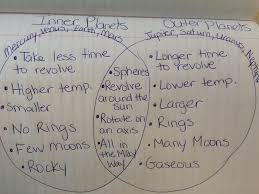 Inner Planets
Mercury, Venus, Earth, Mars
• Take less time
to revolve
• Higher temp.
• Smaller
• No Rings
• Few moons
• Rocky
• Spheres
• Revolve
around the
sun
• Rotate on
an axis
• All in
the Milky
Way
Outer Planets
Jupiter, Saturn, Uranus, Neptune
• Longer time
to revolve
• Lower temp.
• Larger
• Rings
• Many Moons
• Gaseous